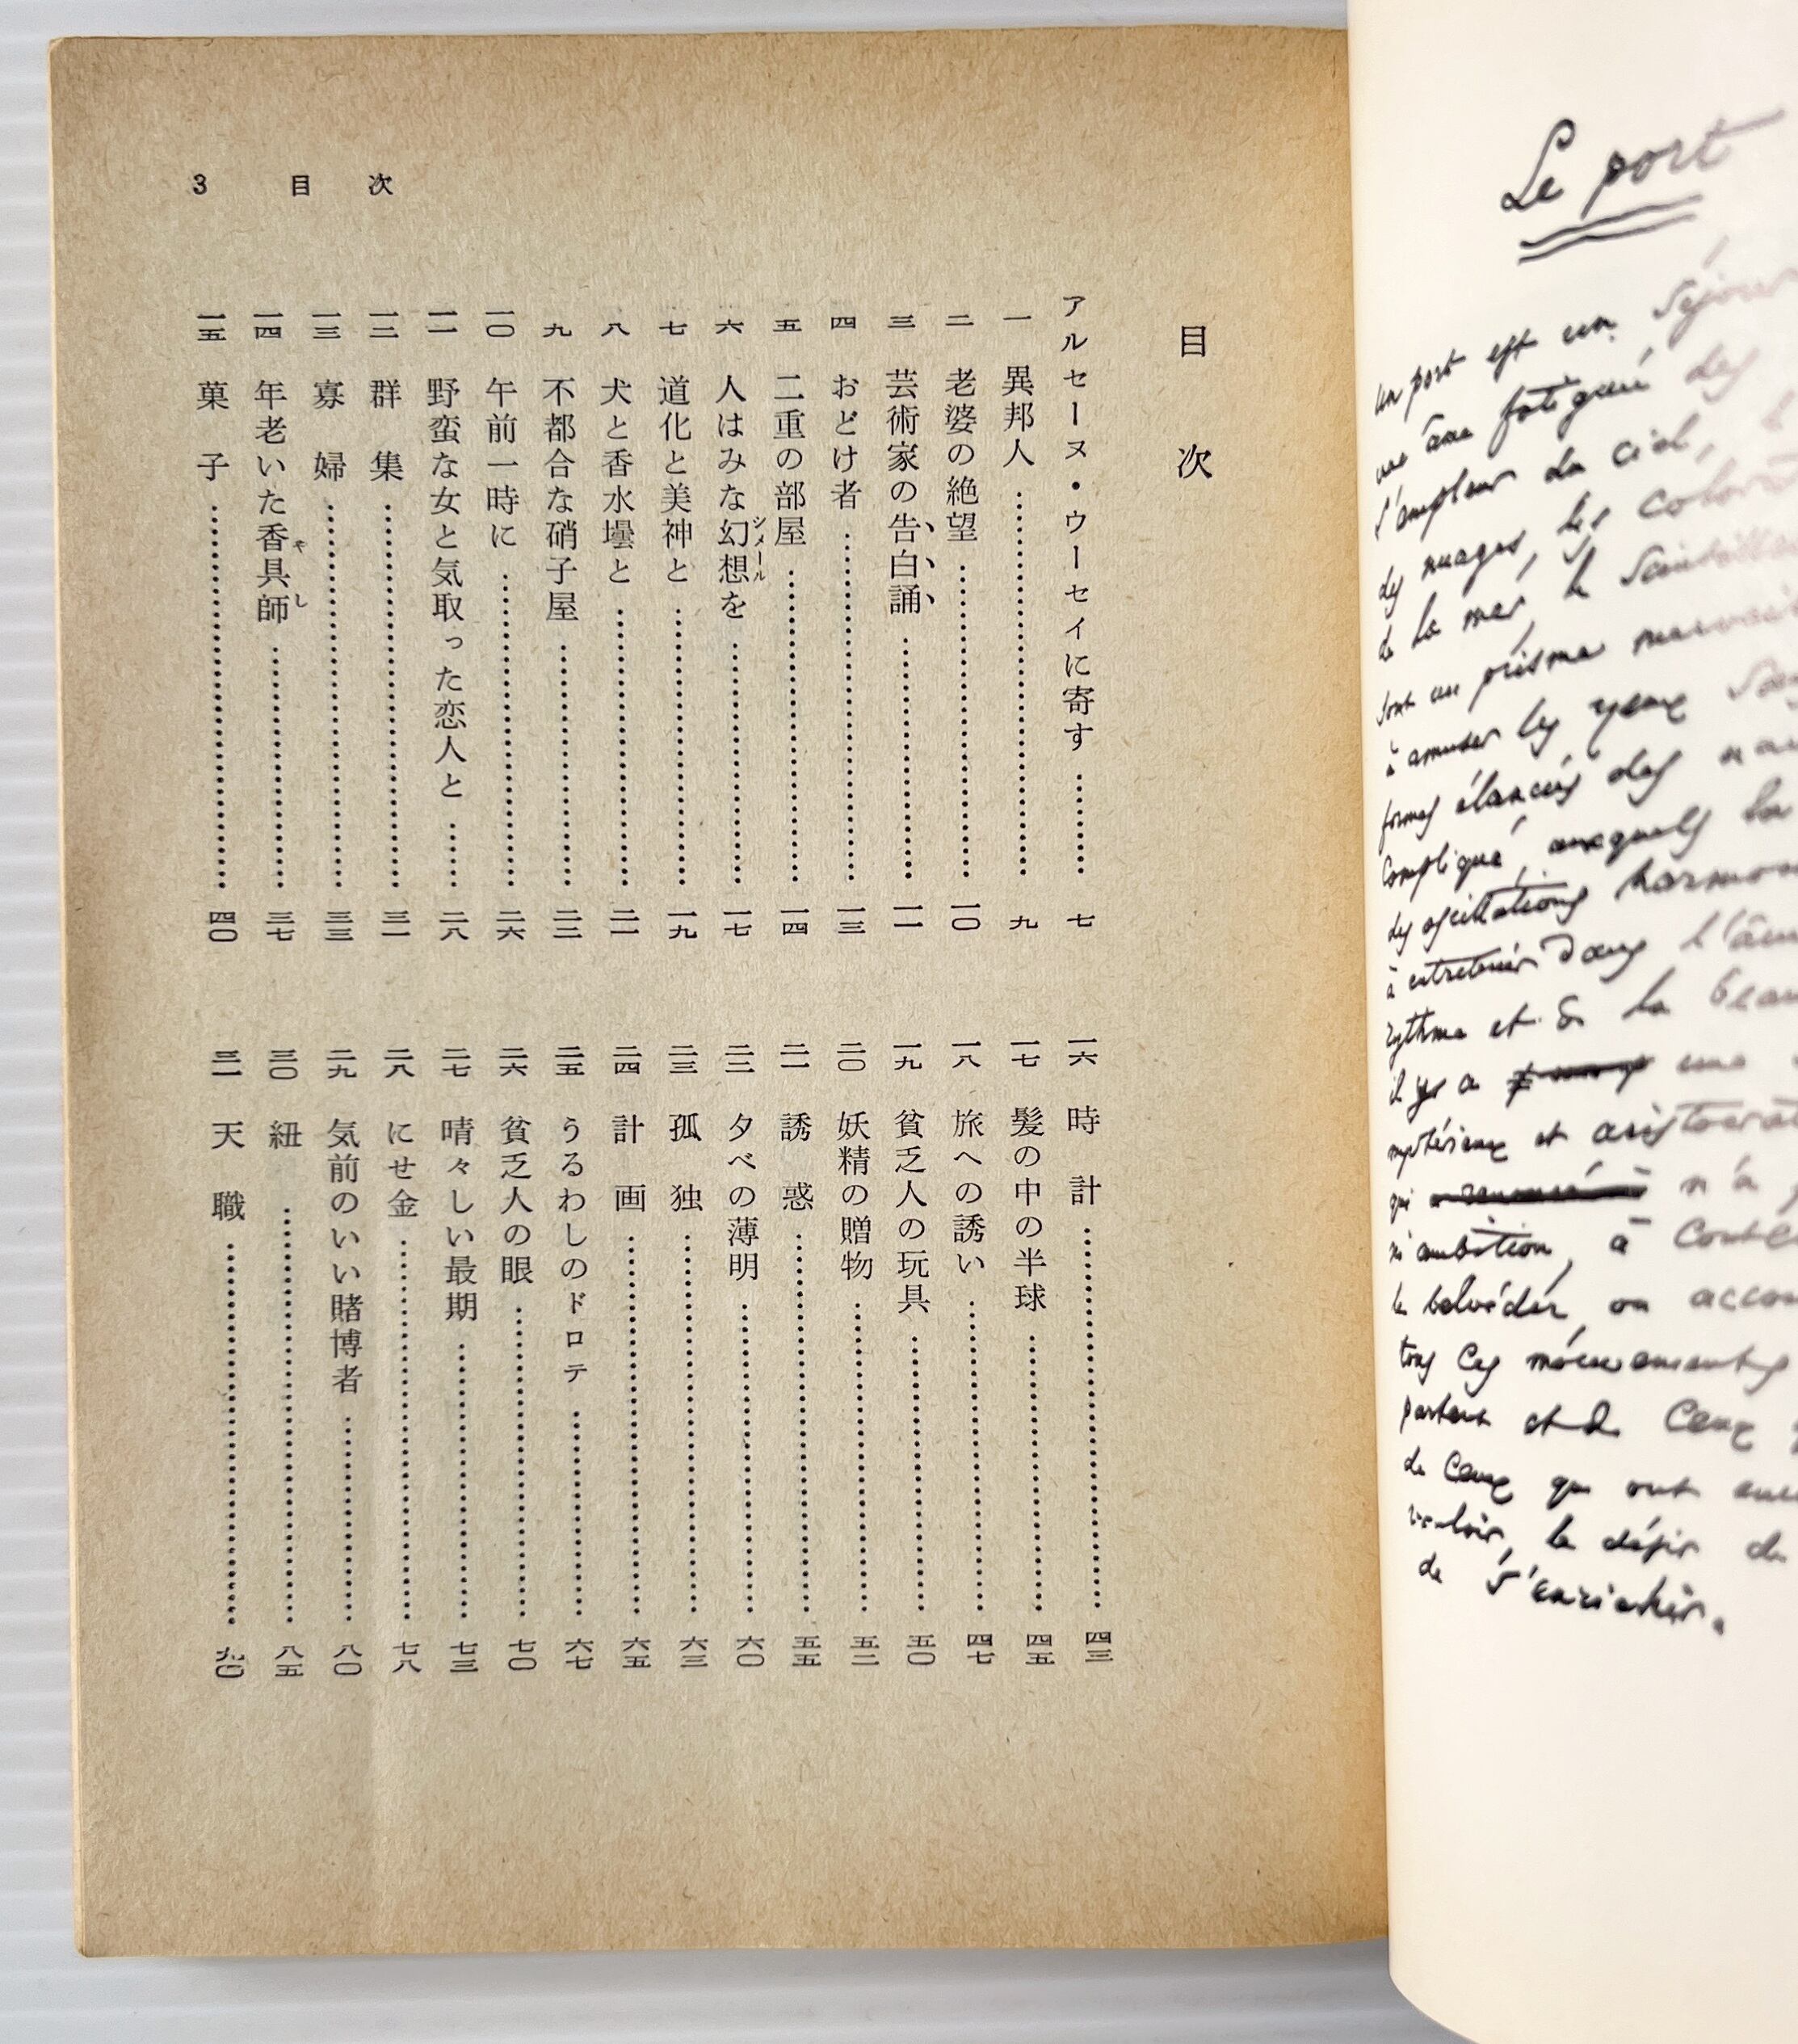 3 目次
目次
アルセーヌ・ウーセイに寄す………七
一 異邦人………九
二 老婆の絶望………一〇
三 芸術家の告白誦………一一
四 おどけ者………一三
五 二重の部屋………一四
六 人はみな幻想を………一七
シメール
七 道化と美神と………一九
八 犬と香水壜と………二一
九 不都合な硝子屋………二二
一〇 午前一時に………二六
一一 野蛮な女と気取った恋人と………二八
一二 群集………三一
一三 寡婦………三三
一四 年老いた香具師………三七
やし
一五 菓子………四〇
一六 時計………四三
一七 髪の中の半球………四五
一八 旅への誘い………四七
一九 貧乏人の玩具………五〇
二〇 妖精の贈物………五二
二一 誘惑………五五
二二 夕べの薄明………六〇
二三 孤独………六三
二四 計画………六五
二五 うるわしのドロテ………六七
二六 貧乏人の眼………七〇
二七 晴々しい最期………七三
二八 にせ金………七八
二九 気前のいい賭博者………八〇
三〇 紐………八五
三一 天職………九〇
Le port
Un port est un séjour
une âme fatiguée des
L'ampleur du ciel, l
des nuages, les colorat
de la mer, le scintillem
sont un prisme merveil
à amuser les yeux sans
formes élancées des nav
compliqué, auxquels la
des oscillations harmon
à entretenir dans l'âme
rythme et de la beau
il y a une
mystérieux et aristocrat
qui n'a
ni ambition, à conte
le belvédèr, ou accou
tous ces mouvements
partent et de ceux
de ceux qui ont enc
vouloir, le désir de
de s'enrichir.